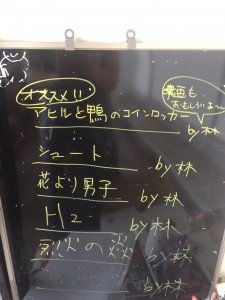 オススメ!!
映画もおもしろいよ〜
アヒルと鴨のコインロッカー
by 林
シュート by 林
花より男子 by 林
H2 by 林
烈火の炎 by 林
by 林